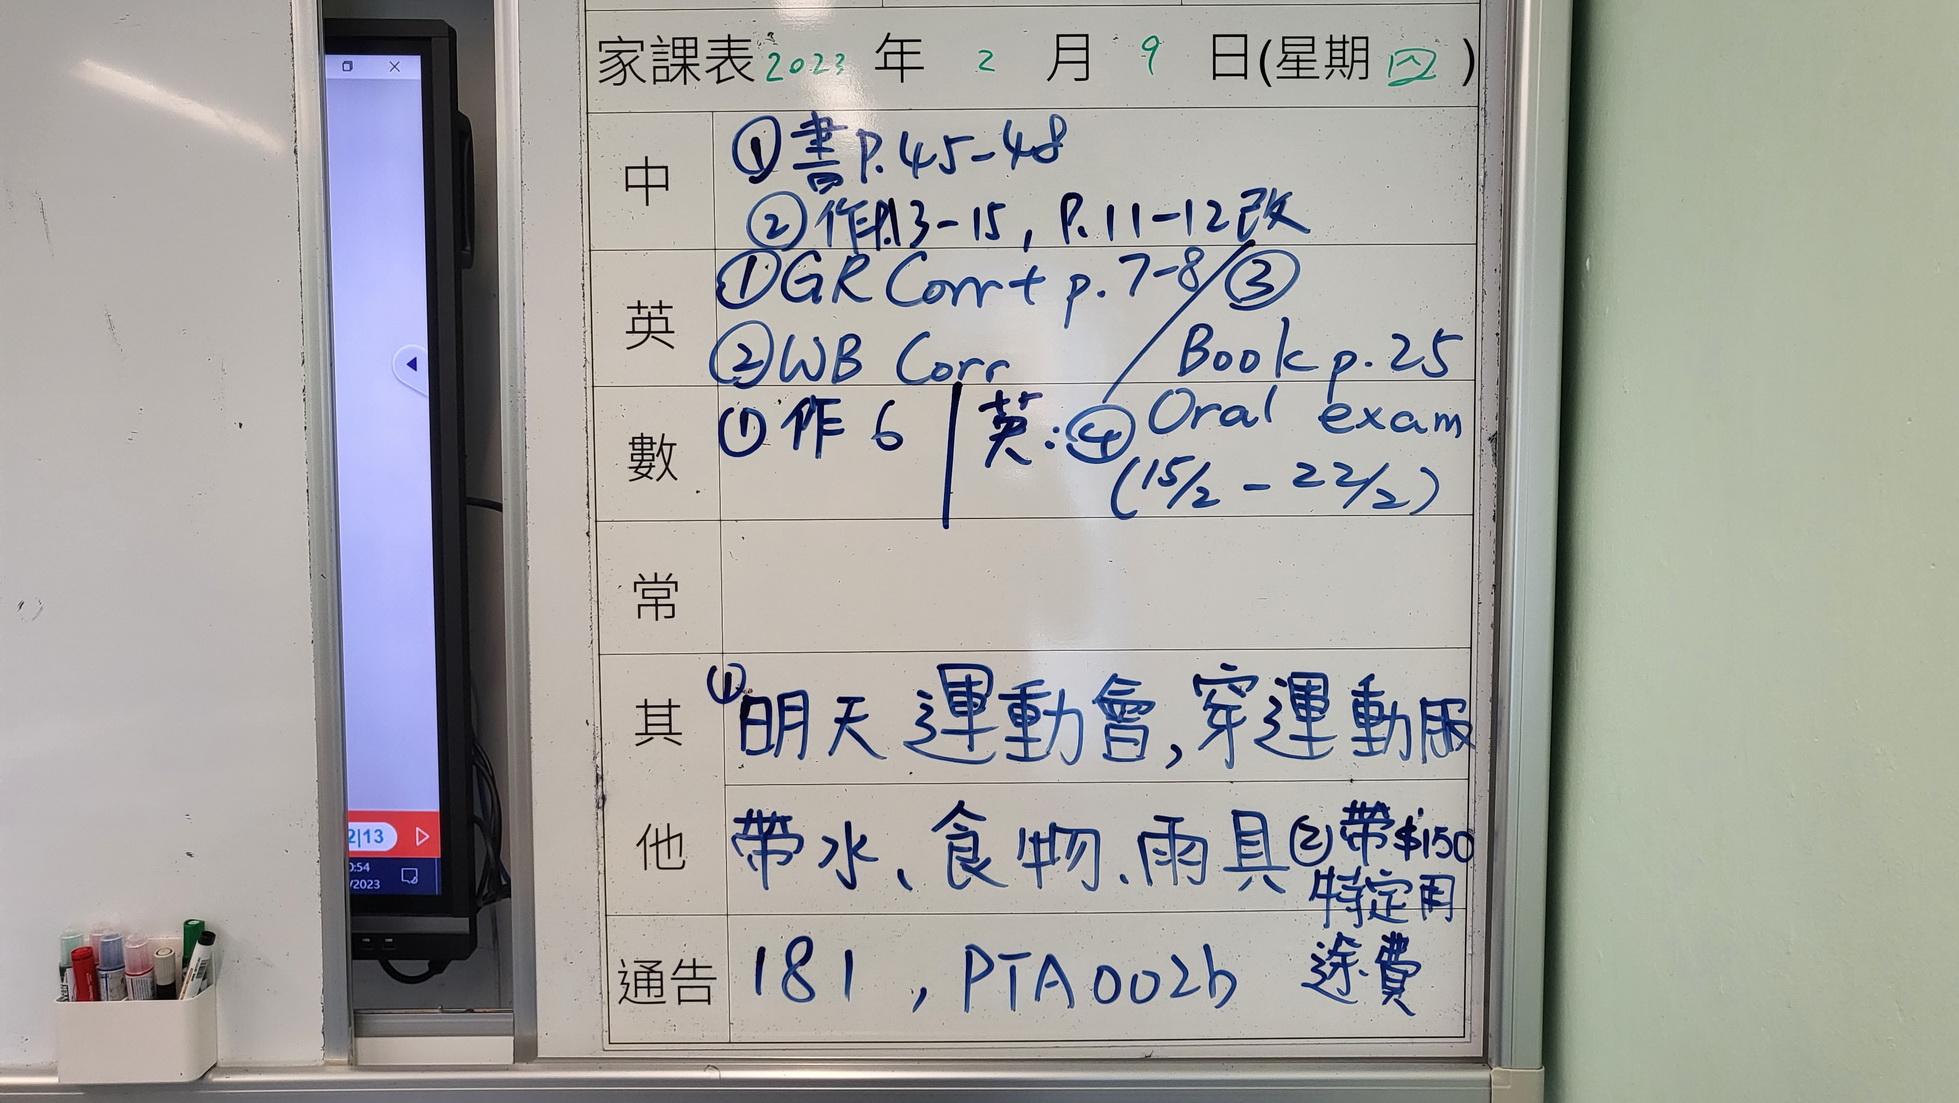 家課表 2023 年 2 月 9 日(星期 四)
中
① 書 P.45-48
② 作P.13-15, P.11-12改
英
① GR Corr + p.7-8 / ③
② WB Corr Book p.25
數
① 作 6 | 英:④ Oral exam
(15/2 - 22/2)
常
其他
① 明天運動會,穿運動服
帶水、食物、雨具 ② 帶$150
特定用
途費
通告 181 , PTA002b
2|13
0:54
/2023